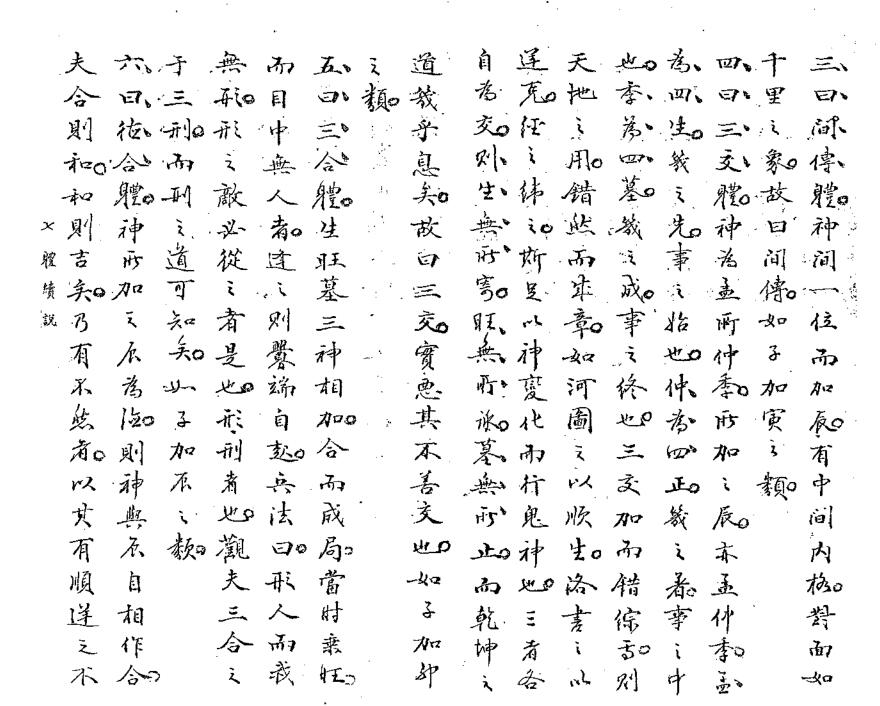 三、曰、間、傳、體。神間一位而加辰。有中间内格。對面如
千里之象。故曰间傳。如子加寅之類。
四、曰、三、交、體。神為孟所仲季。所加之辰。亦孟仲季。孟、
為、四、生。幾之先。事之始也。仲、為、四、正。幾之著。事之中
也。季、為、四、墓。幾之成。事之终也。三交加而错综焉。则
天地之用。错然而成章。如河圖之以順生。洛書之以
逆克。经之纬之。斯足以神變化而行鬼神也。三者各
自為交。则、生、無、所、寄。旺、無、所、承。墓、無、所、止。而乾坤之
道幾乎息矣。故曰三交。實惡其不善交也。如子加卯
之類。
五、曰、三、合、體。生旺墓三神相加。合而成局。當时乘旺。
而目中無人者。逢之则釁端自起。兵法曰。形人而我
無形。形之敵必從之者是也。形刑者也。觀夫三合之
于三刑。而刑之道可知矣。如子加辰之類。
六、曰、德、合、體。神所加之辰為德。则神與辰自相作合。
夫合则和。和则吉矣。乃有不然者。以其有順逆之不
體續説